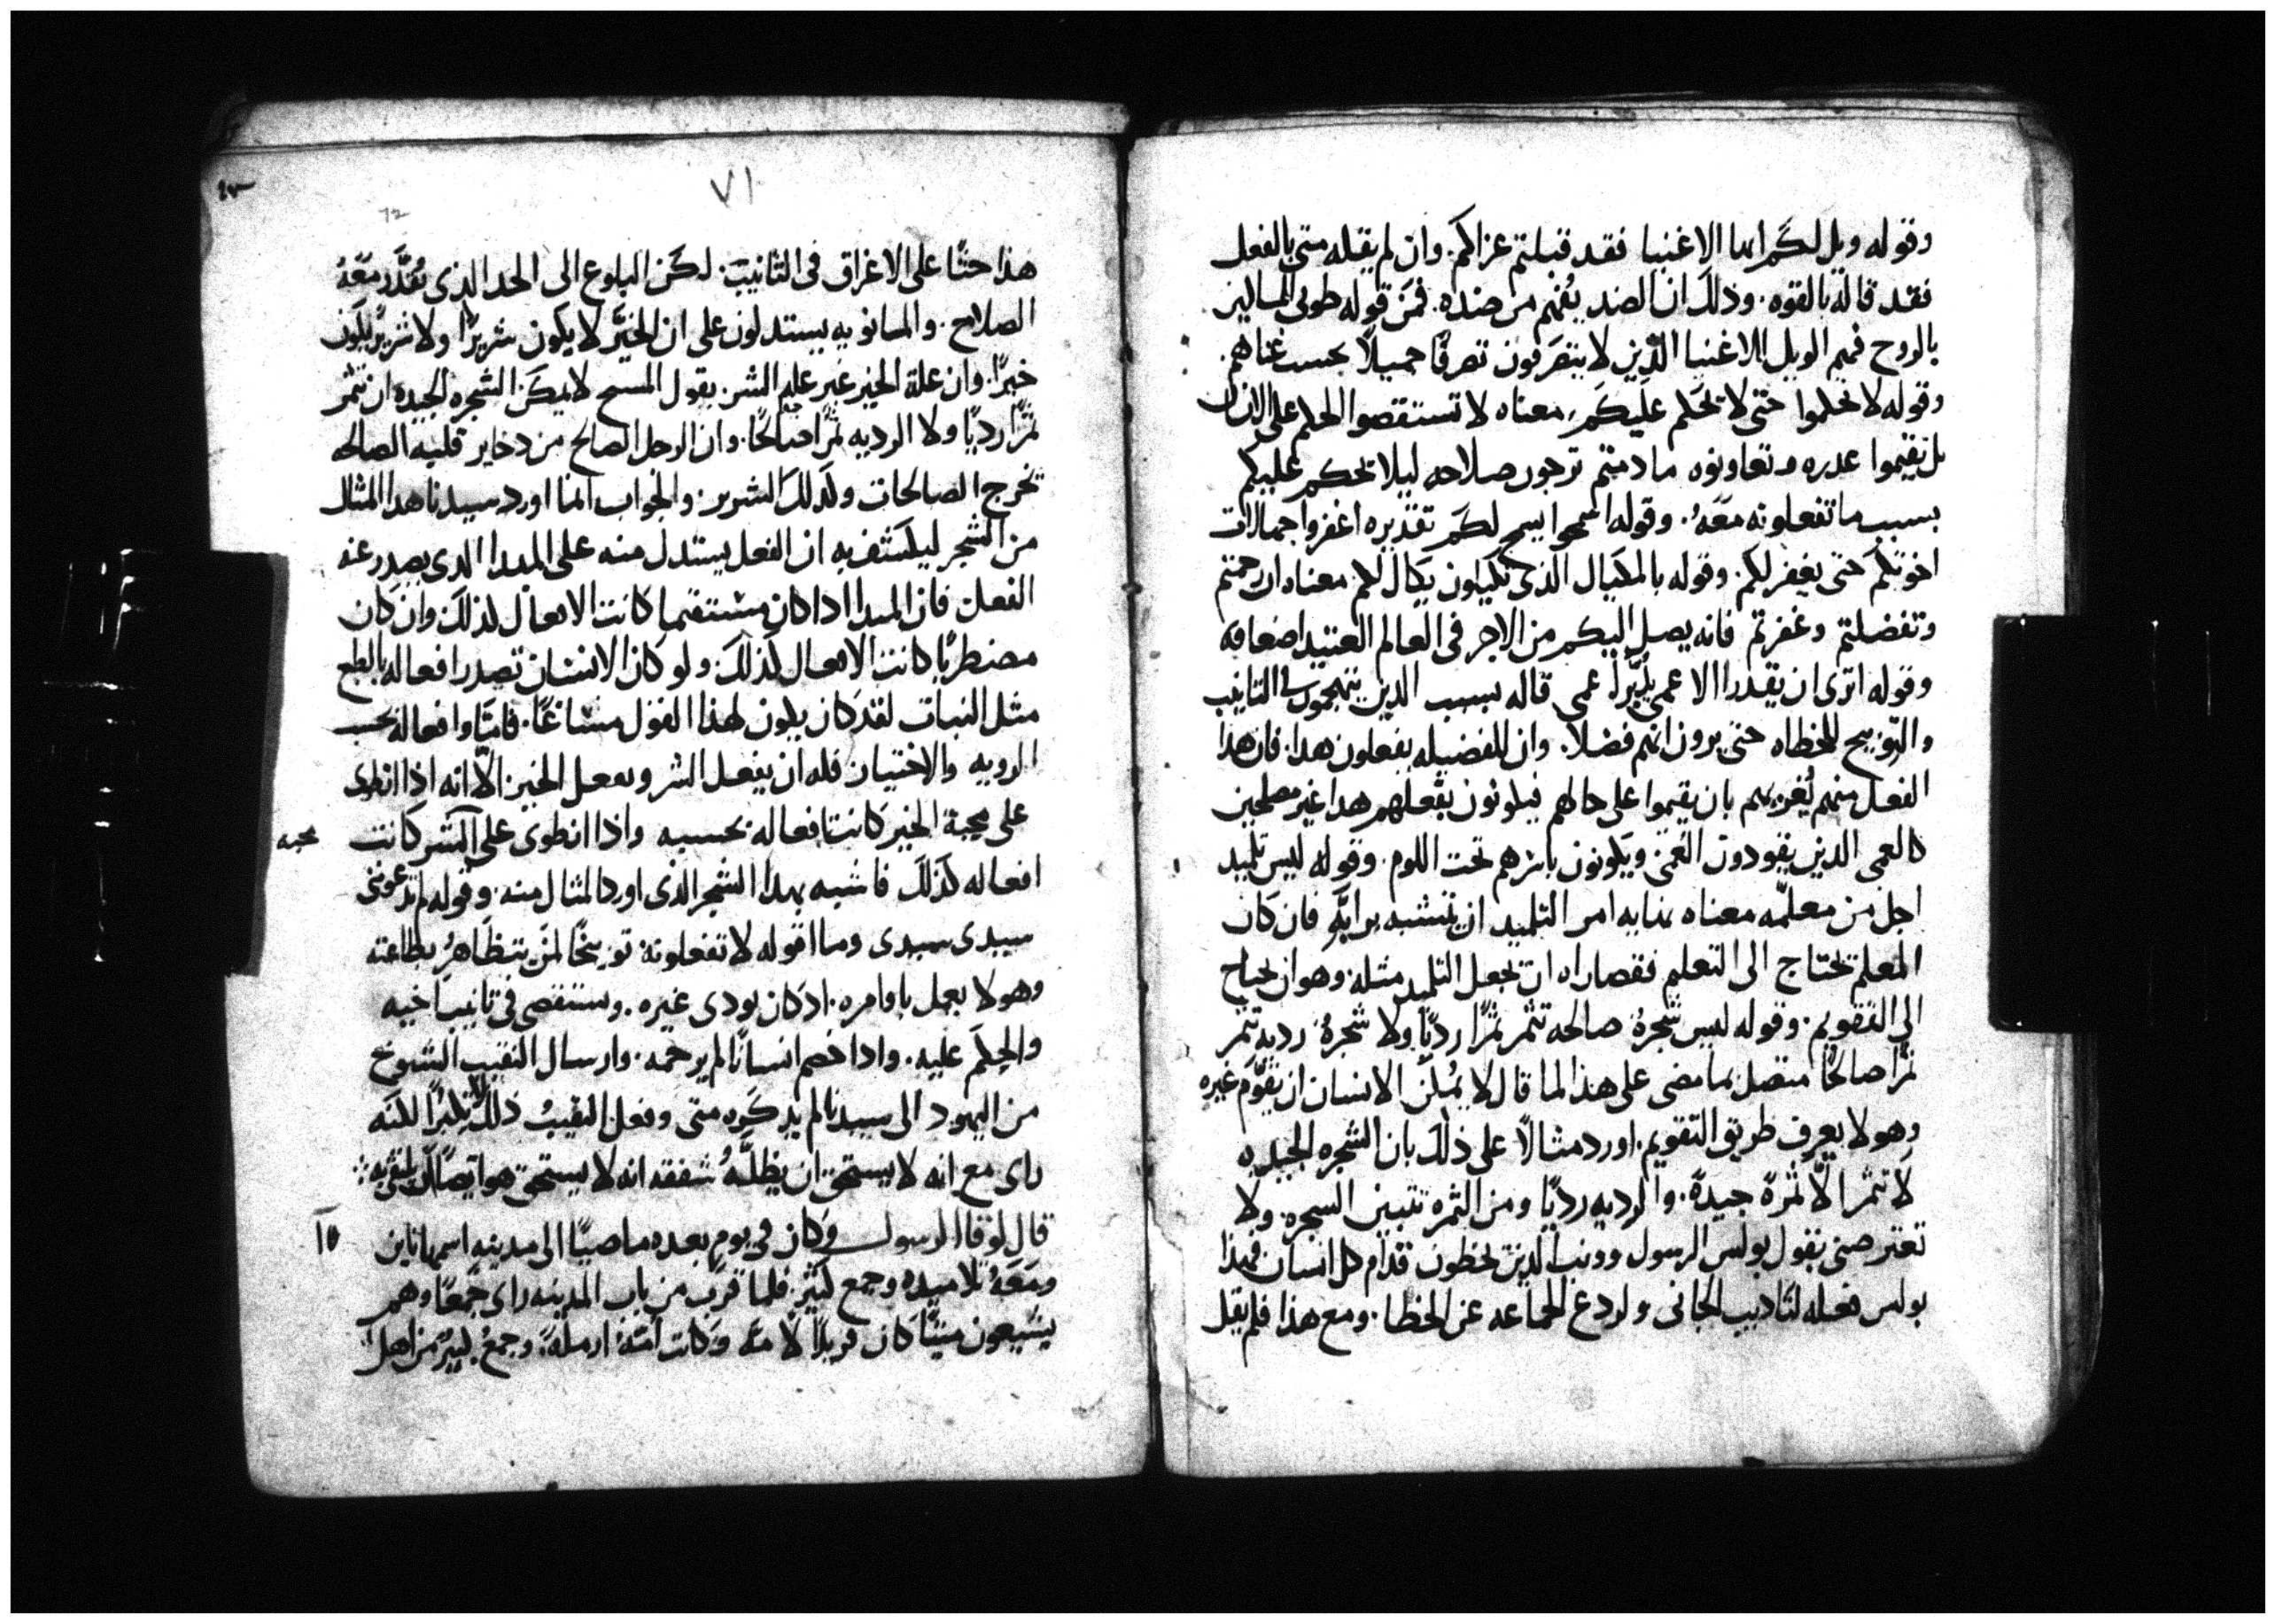 وقوله ويل لكم ايها الاغنيا فقد قبلتم عزاكم. وان لم يقله متى بالفعل
فقد قاله بالقوه. وذلك ان الضد يفهم من ضده. فمن قوله طوبى للمساكين
بالروح فهم الويل للاغنيا الذين لا يتصرفون تصرفًا جميلاً بحسب غناهم.
وقوله لا تحكموا حتى لا يحكم عليكم، معناه لا تستقصوا الحكم على الانسان
بل تقيموا عدره وتعاونوه ما دمتم ترجون صلاحه ليلا يحكم عليكم
بسبب ما تفعلونه معهُ. وقوله اسمحوا يسمح لكم تقديره اغفروا جهالات
اخوتكم حتى يغفر لكم. وقوله بالمكيال الذي تكيلون يكال لكم معناه ان رحمتم
وتفضلتم وغفرتم فانه يصل اليكم من الاجر في العالم العتيد اضعافه
وقوله اترى ان يقدر الاعمى يدبر اعمى قاله بسبب الدين يتهجمون في التانيب
والتوبيخ للخطاه حتى يرون انهم فضلا. وان للفضيله يفعلون هدا. فان هذا
الفعل منهم يُغريهم بان يقيموا على حالهم فيكونون بفعلهم هدا غير مصلحين
كالعمي الدين يقودون العُمي ويكونون باسرهم تحت اللوم. وقوله ليس تلميد
اجل من معلّمه معناه نهايه امر التلميد ان يتشبه برايه فان كان
المعلم يحتاج الى التعليم فقصاراه ان يجعل التلميد مثله وهو ان يحتاج
الى التقويم. وقوله ليس شجرةُ صالحه تثمر ثمرًا رديًا ولا شجرةُ رديه تثمر
ثمرًا صالحًا متصل بما مضى على هذا لما قال لا يمكن الانسان ان يقوّم غيره
وهو لا يعرف طريق التقويم. اورد مثالاً على ذلك بان الشجره الجيده
لا تثمر الّا ثمرةً جيدةً. والرديه رديًا ومن الثمره تتبين الشجره. ولا
تعترضني بقول بولس الرسول وونب الذين يخطون قدام كل انسان فهذا
بولس فعله لتاديب الجاني ولردع الجماعه عن الخطا. ومع هذا فلم يقل
٧١
72
هذا حثًا على الاغراق في التانيب. لكن البلوغ الى الحد الذي يُقدَّر معهُ
الصلاح. والمانويه يستدلون على ان الخيّر لا يكون شريرًا ولا شرير يكون
خيرًا. وان علة الخير غير علة الشر. بقول المسيح لا يمكن الشجره الجيده ان تثمر
ثمرًا رديًا ولا الرديه ثمرًا صالحًا. وان الرجل الصالح من دخاير قلبه الصالحه
يخرج الصالحات وكذلك الشرير. والجواب انما اورد سيدنا هدا المثال
من الشجر ليكشف به ان الفعل يستدل منه على المبدا الدي يصدر عنه
الفعل. فان المبدا ادا كان مستقيما كانت الافعال كذلك وان كان
مضطربًا كانت الافعال كذلك. ولو كان الانسان تصدر افعاله بالطبع
مثل النبات لقد كان يكون لهذا القول مساغًا. فامّا وافعاله بحسب
الرويه والاختيار فله ان يفعل الشر ويفعل الخير. الّا انه اذا انطوى
على محبة الخير كانت افعاله بحسبه واذا انطوى على الشر كانت
محبه
افعاله كذلك فاشبه بهدا الشجر الذي اورد المثال منه. وقوله لم تدعونني
سيدي سيدي وما اقوله لا تفعلونه توبيخًا لمن يتظاهرُ بطاعته
وهو لا يعمل باوامره. اد كان يودي غيره. ويستقصي في تانيب اخيه
والحكم عليه. وادا خصم انسانًا لم يرحمه. وارسال النقيب الشيوخ
من اليهود الى سيدنا لم يدكره متى وفعل النقيبُ ذلك لا تكبرًا لكنه
راى مع انه لا يستحق ان يظلَّهُ سقفه انه لا يستحق هو ايضًا ان يلتقي به
قال لوقا الرسول وكان في يوم بعده ماضيًا الى مدينه اسمها ناين
١٥
ومعهُ تلاميده وجمع كثير. فلما قرب من باب المدينه راى جمعًا وهم
يشيعون ميتًا كان فريدًا لامّه وكانت امّهُ ارملةً، وجمعُ كبيرُ من اهل